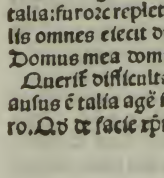 talia: furore replet
lis omnes eiecit d
Domus mea dom
Queriť difficult
ausus ē talia agē
ro. Qđ de facie xp̄i